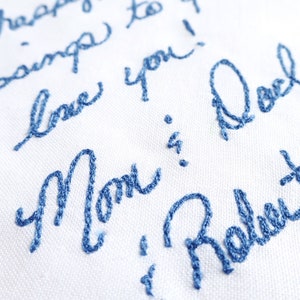 to
love you!
Mom & Dad
& Robert